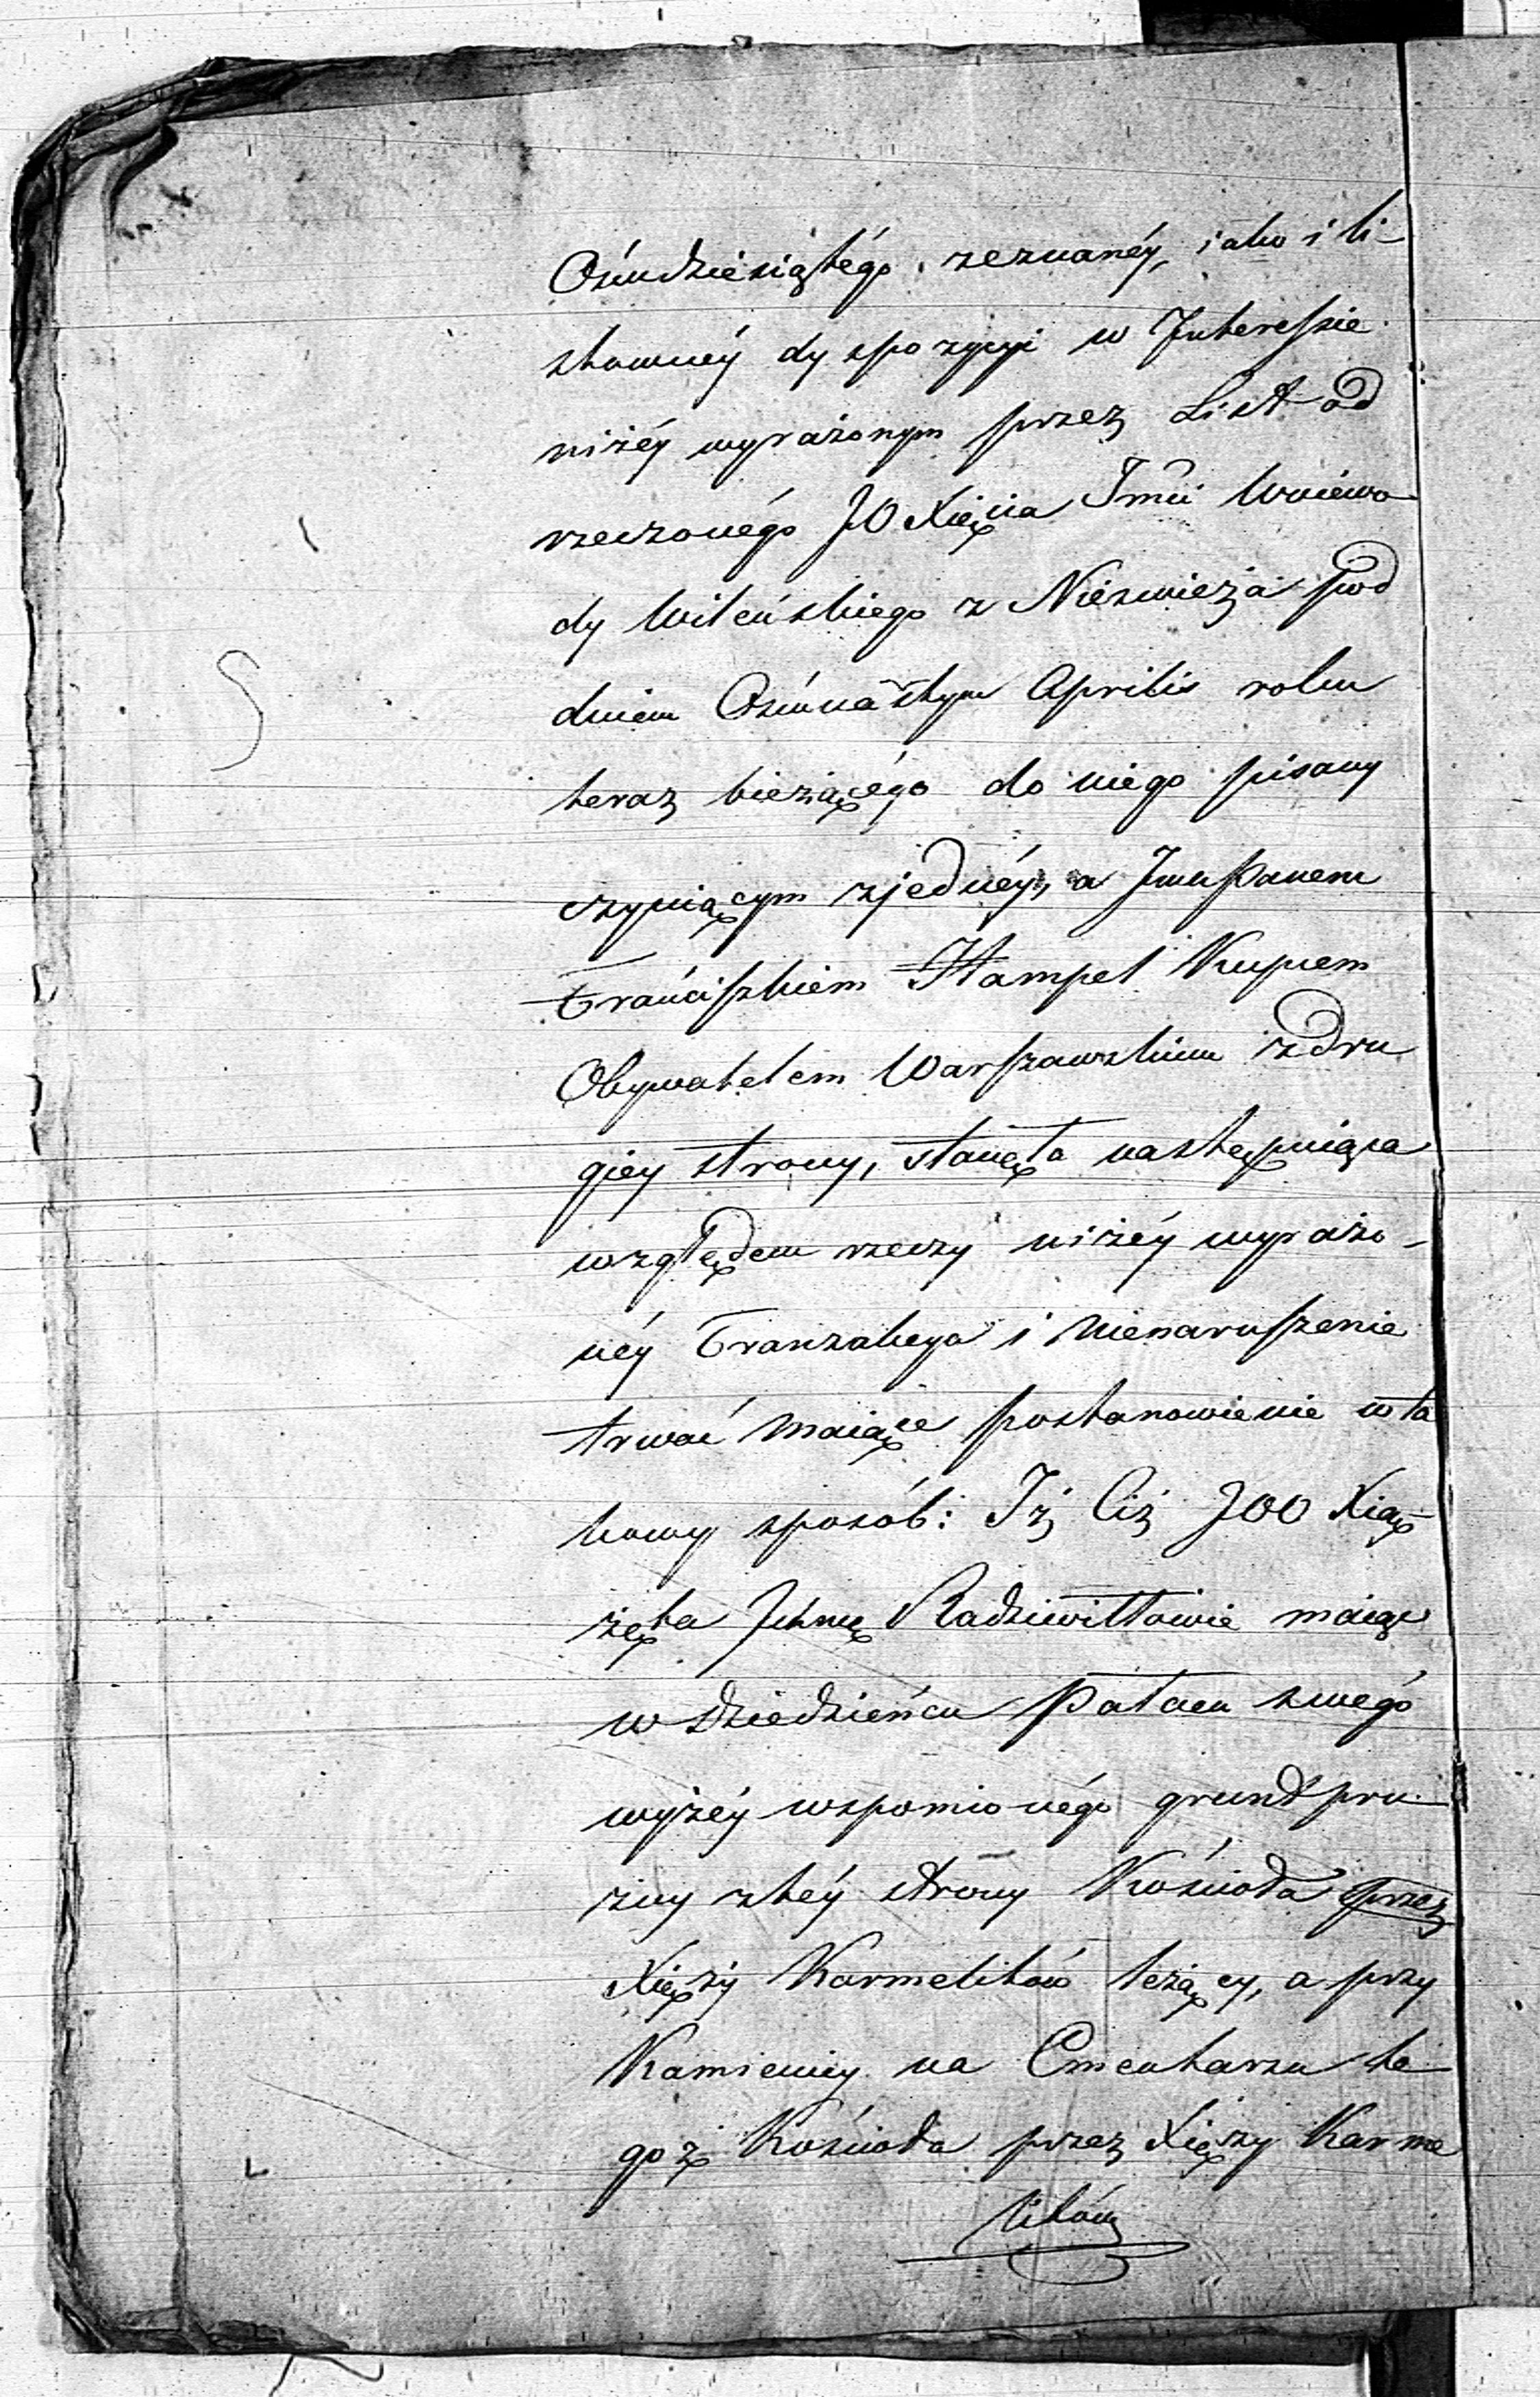 Ośmdziesiątégo zeznanéy, iako i li-
stowney dyspozycyi w Interessie
niżéy wyrażonym przez List od
rzeczonégo JO Xięcia Jmći Woiewo
dy Wileńskiego z Nieświeża pod
dniem Ośmnastym Aprilis roku
teraz bieżącégo do niego pisany
czyniącym z jednéy, a Jmć Panem
Franciszkiem Hampel Kupcem
Obywatelem Warszawskim z dru
giey strony, stanęła następuiąca
względem rzeczy niżéy wyrażo-
néy Tranzakcya i nienaruszenie
trwać maiące postanowienie w ta
kowy sposób: Iż Ciż JOO Xią-
żęta Ichmć Radziwiłłowie maiąc
w dziedzieńcu Pałacu swégo
wyżéy wspomnionégo grunt pru
żny z téy strony Kościoła przez
Xięży Karmelitów leżący, a przy
Kamienicy na Cmentarzu te
goż Kościoła przez Xięży Karme
litów